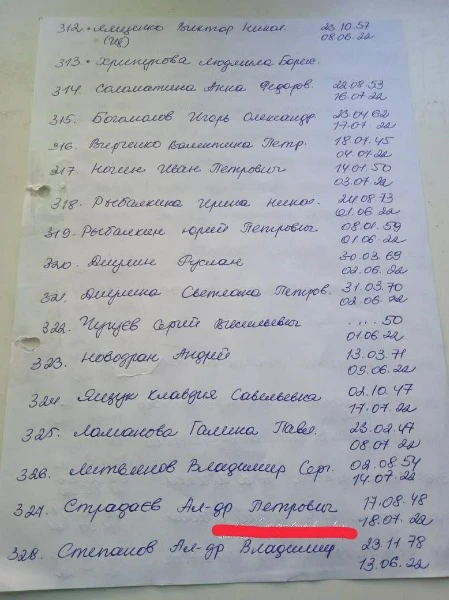 312 • Ямщенко Виктор Никол. 23.10.57
(Цв) 08.06.22
313 • Хрипунова Людмила Борис.
314. Соломатина Анна Федоров. 22.08.53
16.07.22
315. Богомолов Игорь Олександр 23.04.62
17.07.22
316. Вирченко Валентина Петр. 18.07.45
04.07.22
217. Ногин Иван Петрович 14.01.50
03.07.22
318. Рыбалкина Ирина Никол. 24.08.73
01.06.22
319. Рыбалкин Юрий Петрович 08.01.59
01.06.22
320. Дицмин Руслан 30.03.69
02.06.22
321. Дицмина Светлана Петров. 31.03.70
02.06.22
322. Чугуев Сергий Васильевич ... 50
01.06.22
323. Новодран Андрей 13.03.71
09.06.22
324. Ящук Клавдия Савельевна 02.10.47
17.07.22
325. Ломанова Галина Павл. 23.02.47
08.07.22
326. Литвинов Владимир Серг. 02.08.54
14.07.22
327. Страдаєв Ал-др Петрович 17.08.48
18.07.22
328. Степанов Ал-др Владимир 23.11.78
13.06.22